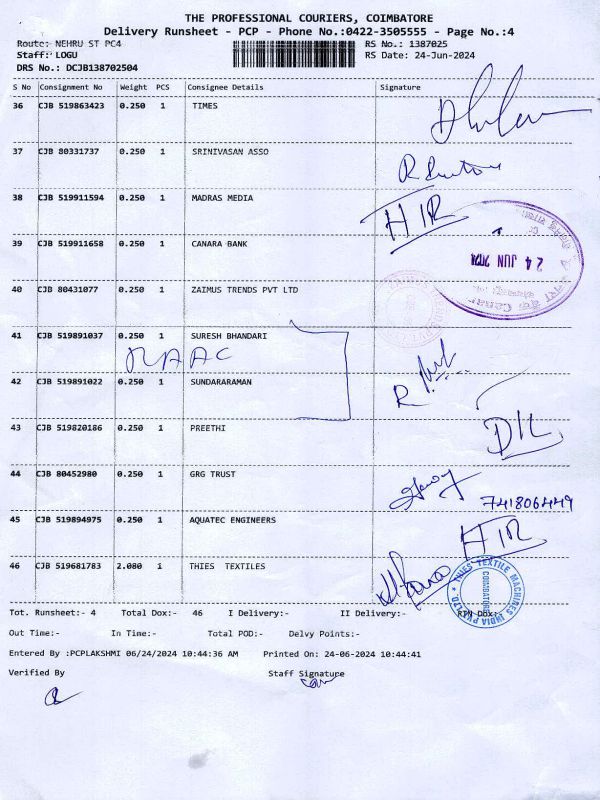 THE PROFESSIONAL COURIERS, COIMBATORE
Delivery Runsheet - PCP - Phone No.:0422-3505555 - Page No.:4
Route: NEHRU ST PC4 RS No.: 1387025
Staff: LOGU RS Date: 24-Jun-2024
DRS No.: DCJB138702504
S No Consignment No Weight PCS Consignee Details Signature
36 CJB 519863423 0.250 1 TIMES
37 CJB 80331737 0.250 1 SRINIVASAN ASSO
38 CJB 519911594 0.250 1 MADRAS MEDIA
HIR
39 CJB 519911658 0.250 1 CANARA BANK
24 JUN 2024
40 CJB 80431077 0.250 1 ZAIMUS TRENDS PVT LTD
41 CJB 519891037 0.250 1 SURESH BHANDARI
42 CJB 519891022 0.250 1 SUNDARARAMAN
43 CJB 519820186 0.250 1 PREETHI
D/L
44 CJB 80452980 0.250 1 GRG TRUST
741806449
45 CJB 519894975 0.250 1 AQUATEC ENGINEERS
HIR
46 CJB 519681783 2.080 1 THIES TEXTILES
THIES TEXTILE MACHINES INDIA PVT LTD.
COIMBATORE
Tot. Runsheet:- 4 Total Dox:- 46 I Delivery:- II Delivery:- RTN Dox:-
Out Time:- In Time:- Total POD:- Delvy Points:-
Entered By :PCPLAKSHMI 06/24/2024 10:44:36 AM Printed On: 24-06-2024 10:44:41
Verified By Staff Signature